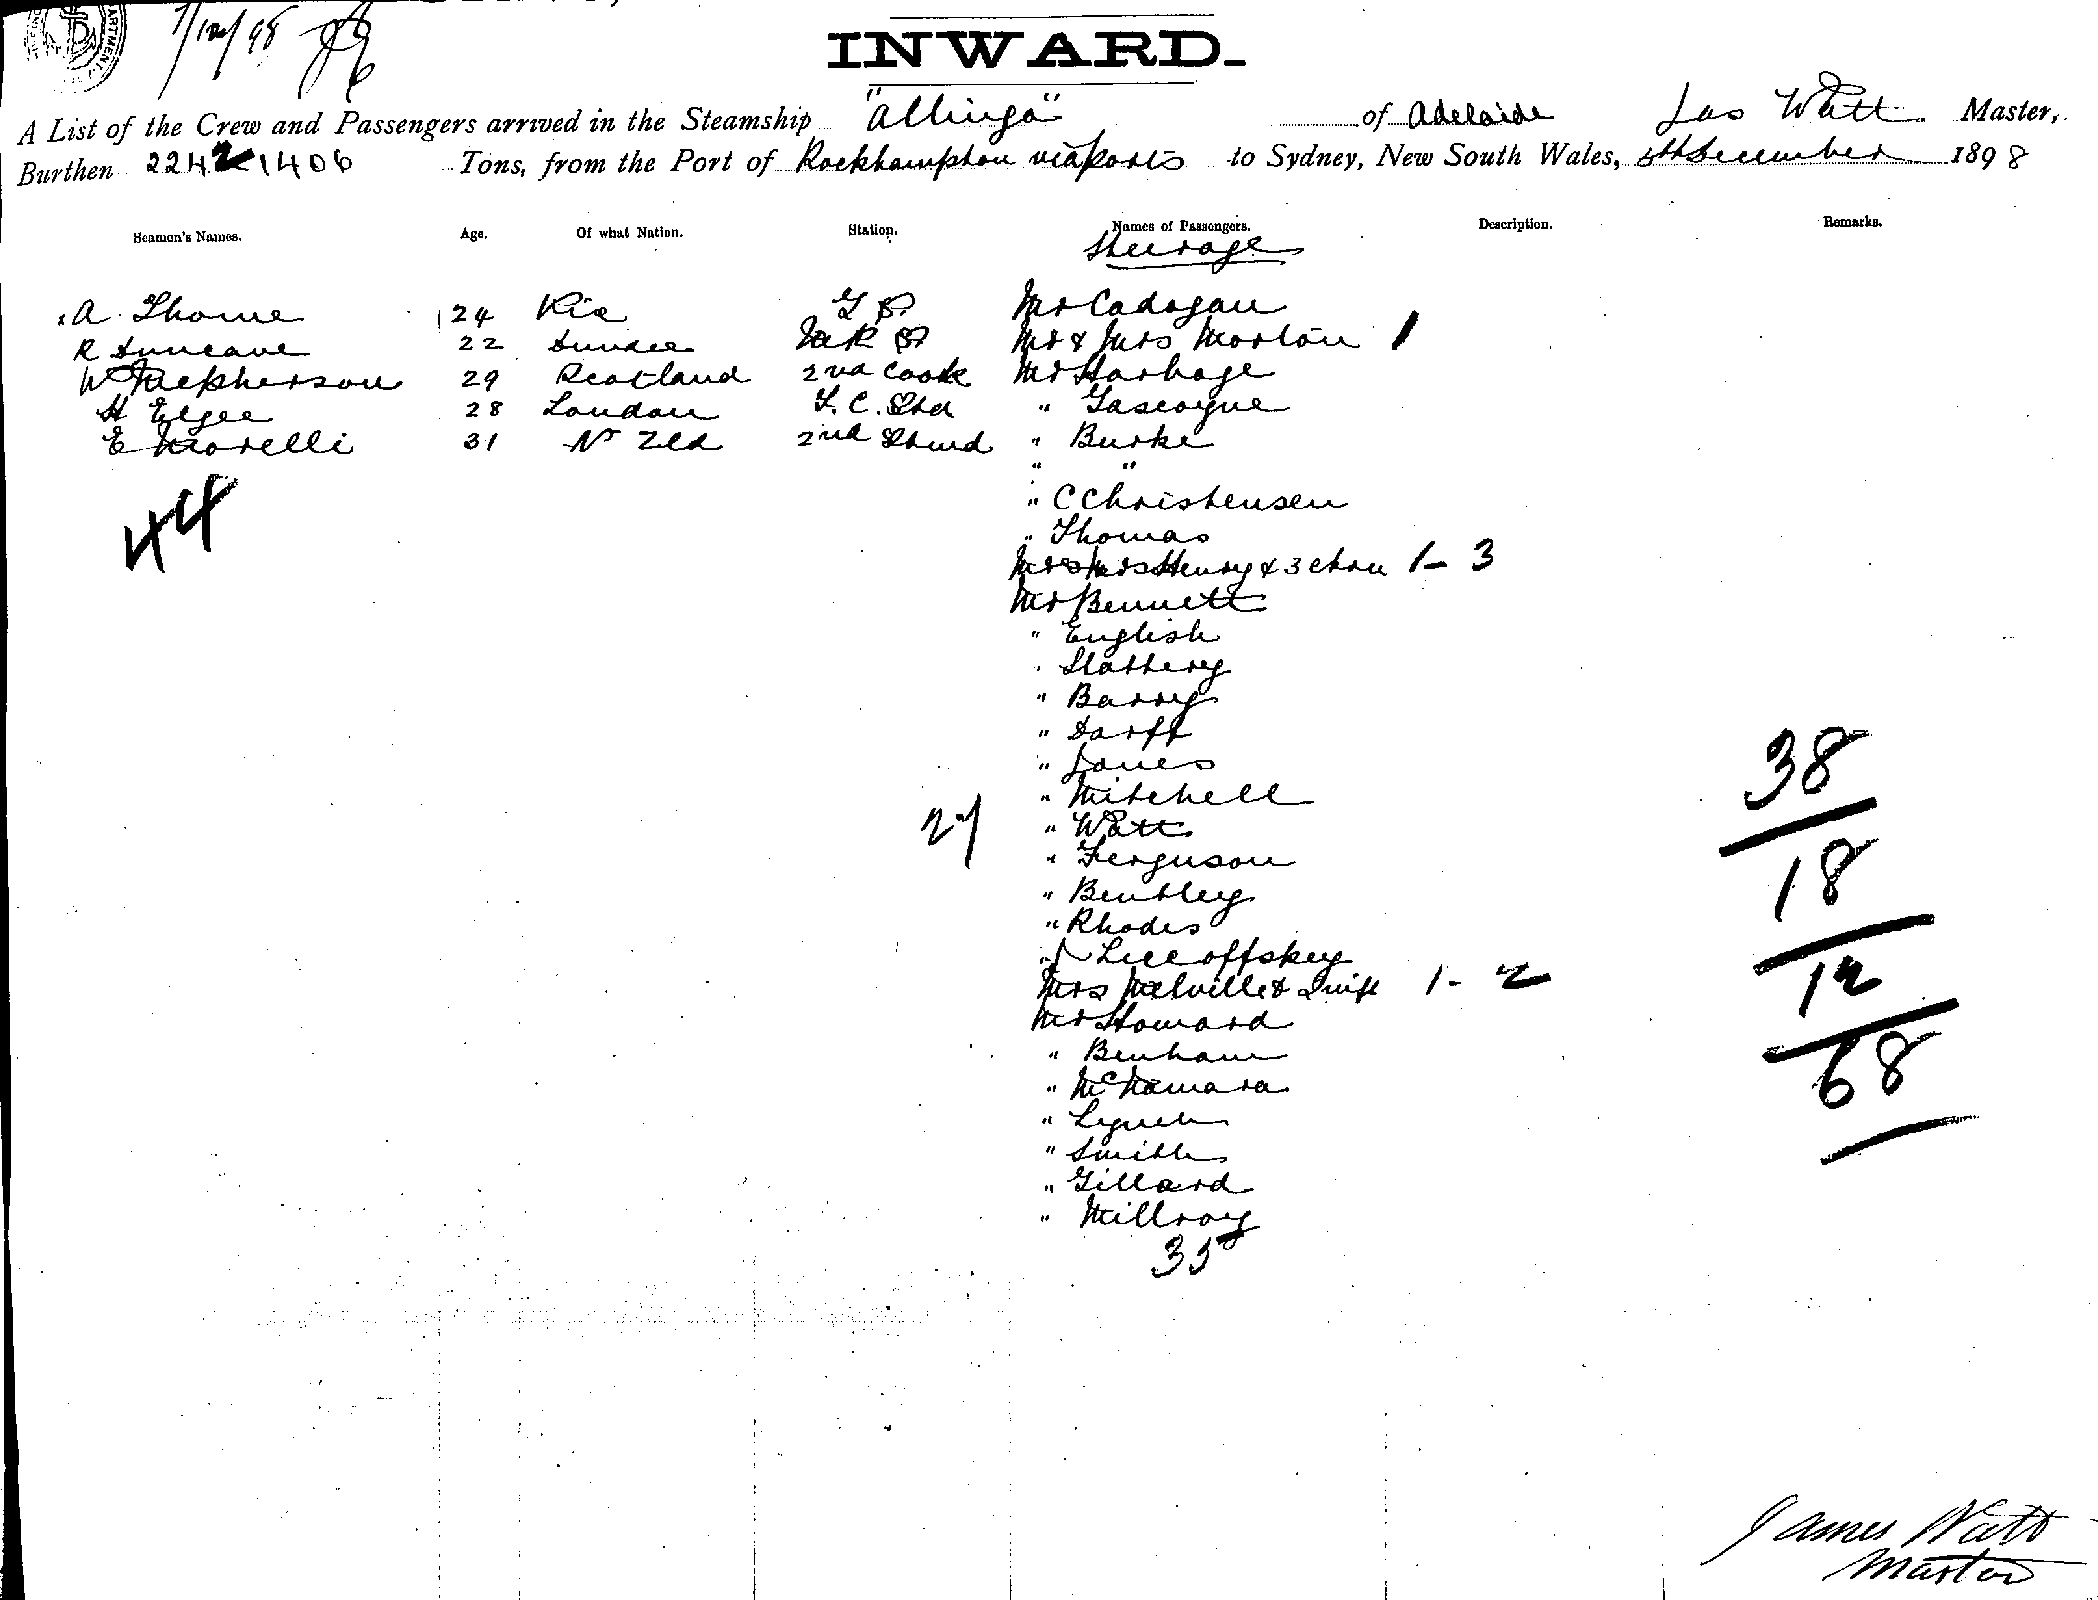 7/12/98
INWARD.
A List of the Crew and Passengers arrived in the Steamship "Allinga" of Adelaide Jas Watt Master,
Burthen 2242 1406 Tons, from the Port of Rockhampton via ports to Sydney, New South Wales, 5th December 1898
Seamen's Names. Age. Of what Nation. Station. Names of Passengers. Description. Remarks.
Steerage
A. Thorne 24 Rio Mr Cadogan
R Duncan 22 Dundee Mr & Mrs Morton 1
W McPherson 29 Scotland 2nd Cook Mr Harbage
H Elgee 28 London F. C. Std " Gascoyne
E Morelli 31 N Zld 2nd Stwd " Burke
" "
44 " C Christensen
" Thomas
Mr & Mrs Henry & 3 chrn 1 - 3
Mr Bennett
" English
" Slattery
" Barry
" Darft
" Jones
" Mitchell
27 " Watt
" Ferguson
" Bentley
" Rhodes
" Liceoffskey
Mrs Melville & 2 inft 1 - 2
Mr Howard
" Benham
" McNamara
" Lynch
" Smith
" Gillard
" Millroy
35
38
18
12
68
James Watt
Master